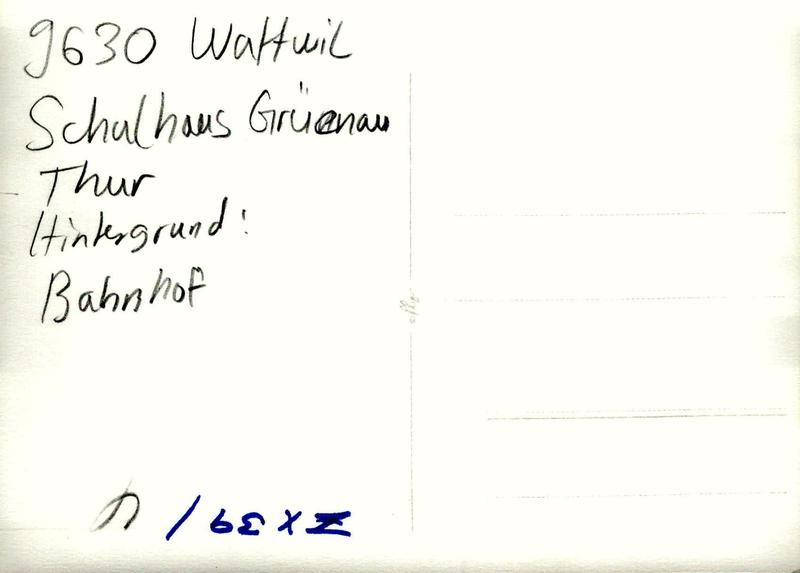 9630 Wattwil
Schulhaus Grüenau
Thur
Hintergrund:
Bahnhof
Z X 39 /